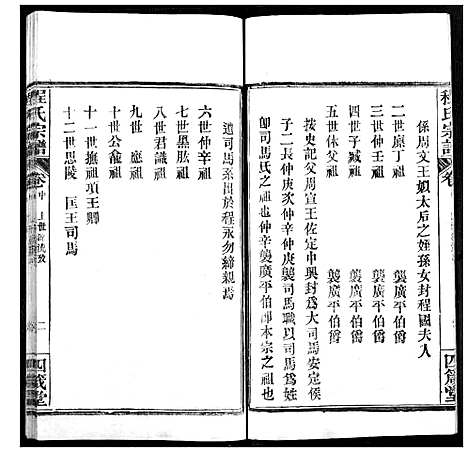 程氏宗譜
係周文王娰太后之姪孫女封程國夫人
二世原丁祖 襲廣平伯爵
三世仲壬祖 襲廣平伯爵
四世子臧祖 襲廣平伯爵
五世休父祖 襲廣平伯爵
按史記父周宣王佐定中興封為大司馬安定侯
子二長仲庚次仲辛仲庚襲司馬職以司馬為姓
卽司馬氏之祖也仲辛襲廣平伯卽本宗之祖也
四箴堂
道司馬系出於程永勿締親焉
六世仲辛祖
七世黑肱祖
八世君識祖
九世應祖
十世公龠祖
十一世撫祖頃王卿
十二世思陵 匡王司馬
程氏宗譜
卷
二
四箴堂